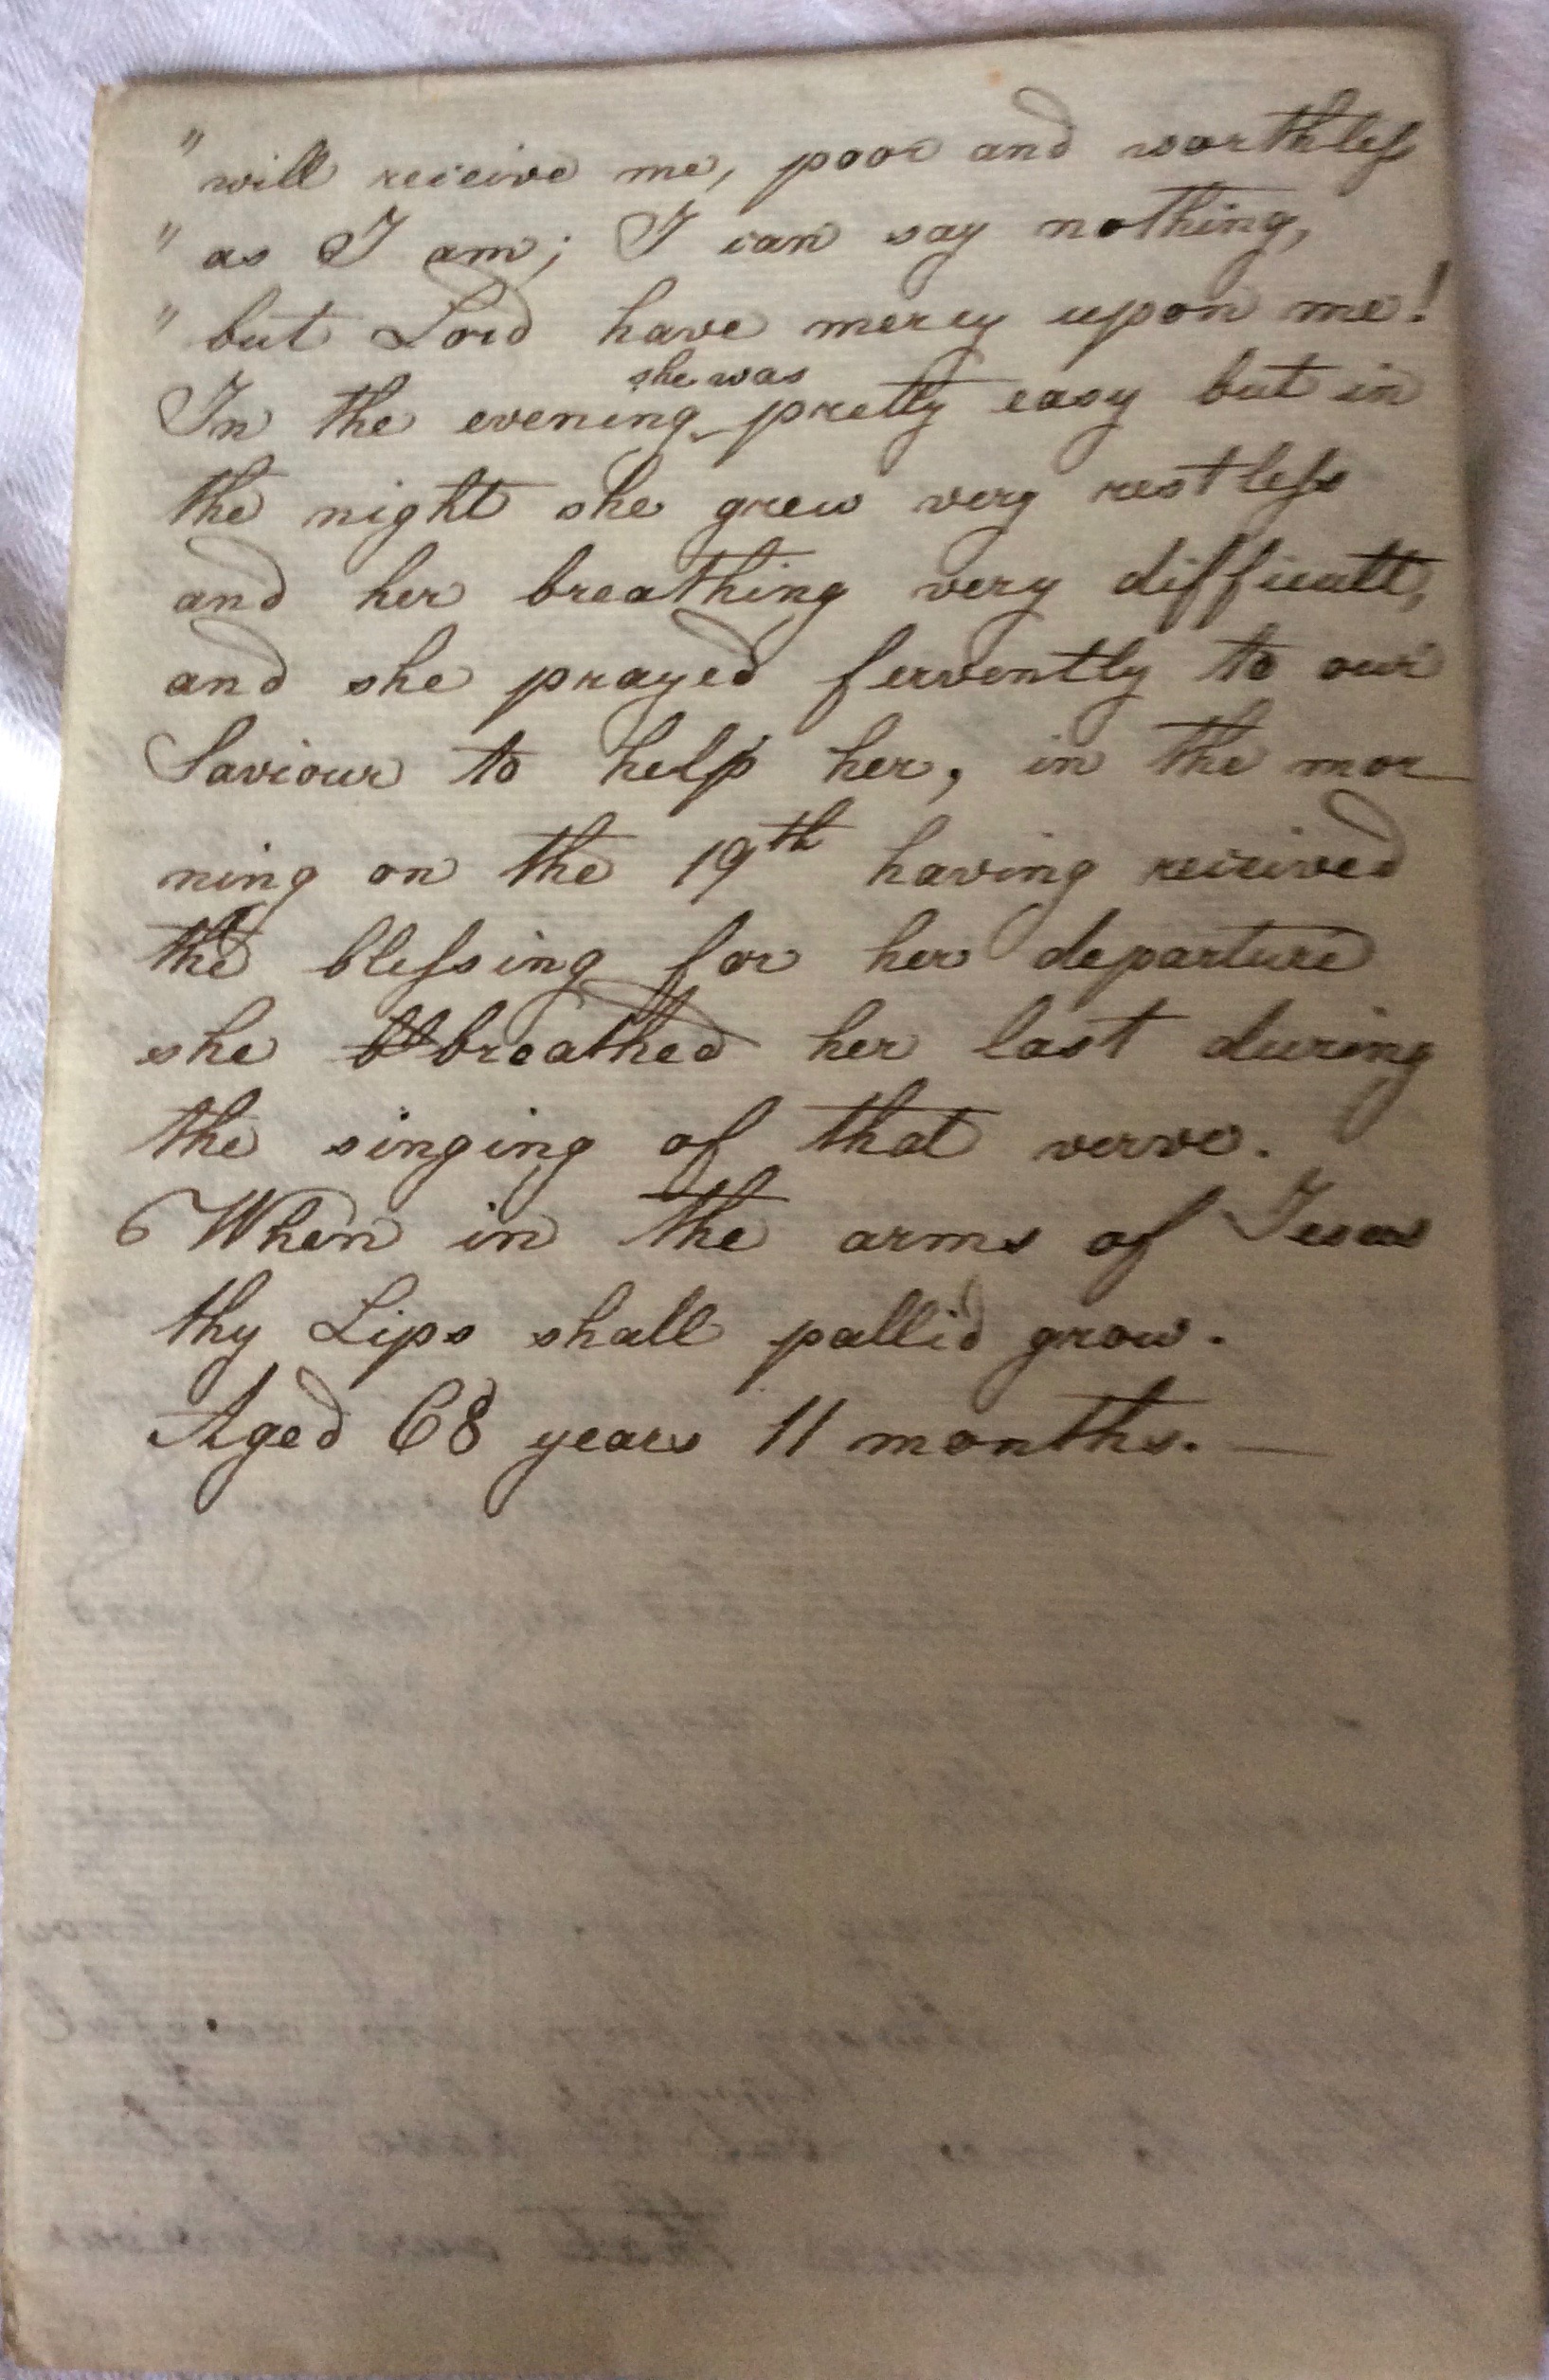 " will receive me, poor and worthleſs
" as I am; I can say nothing,
" but Lord have mercy upon me!
she was
In the evening pretty easy but in
the night she grew very restleſs
and her breathing very difficult,
and she prayed fervently to our
Saviour to help her, in the mor
ning on the 19th having received
the bleſsing for her departure
she breathed her last during
the singing of that verse.
When in the arms of Jesus
thy Lips shall pallid grow.
Aged 68 years 11 months. —